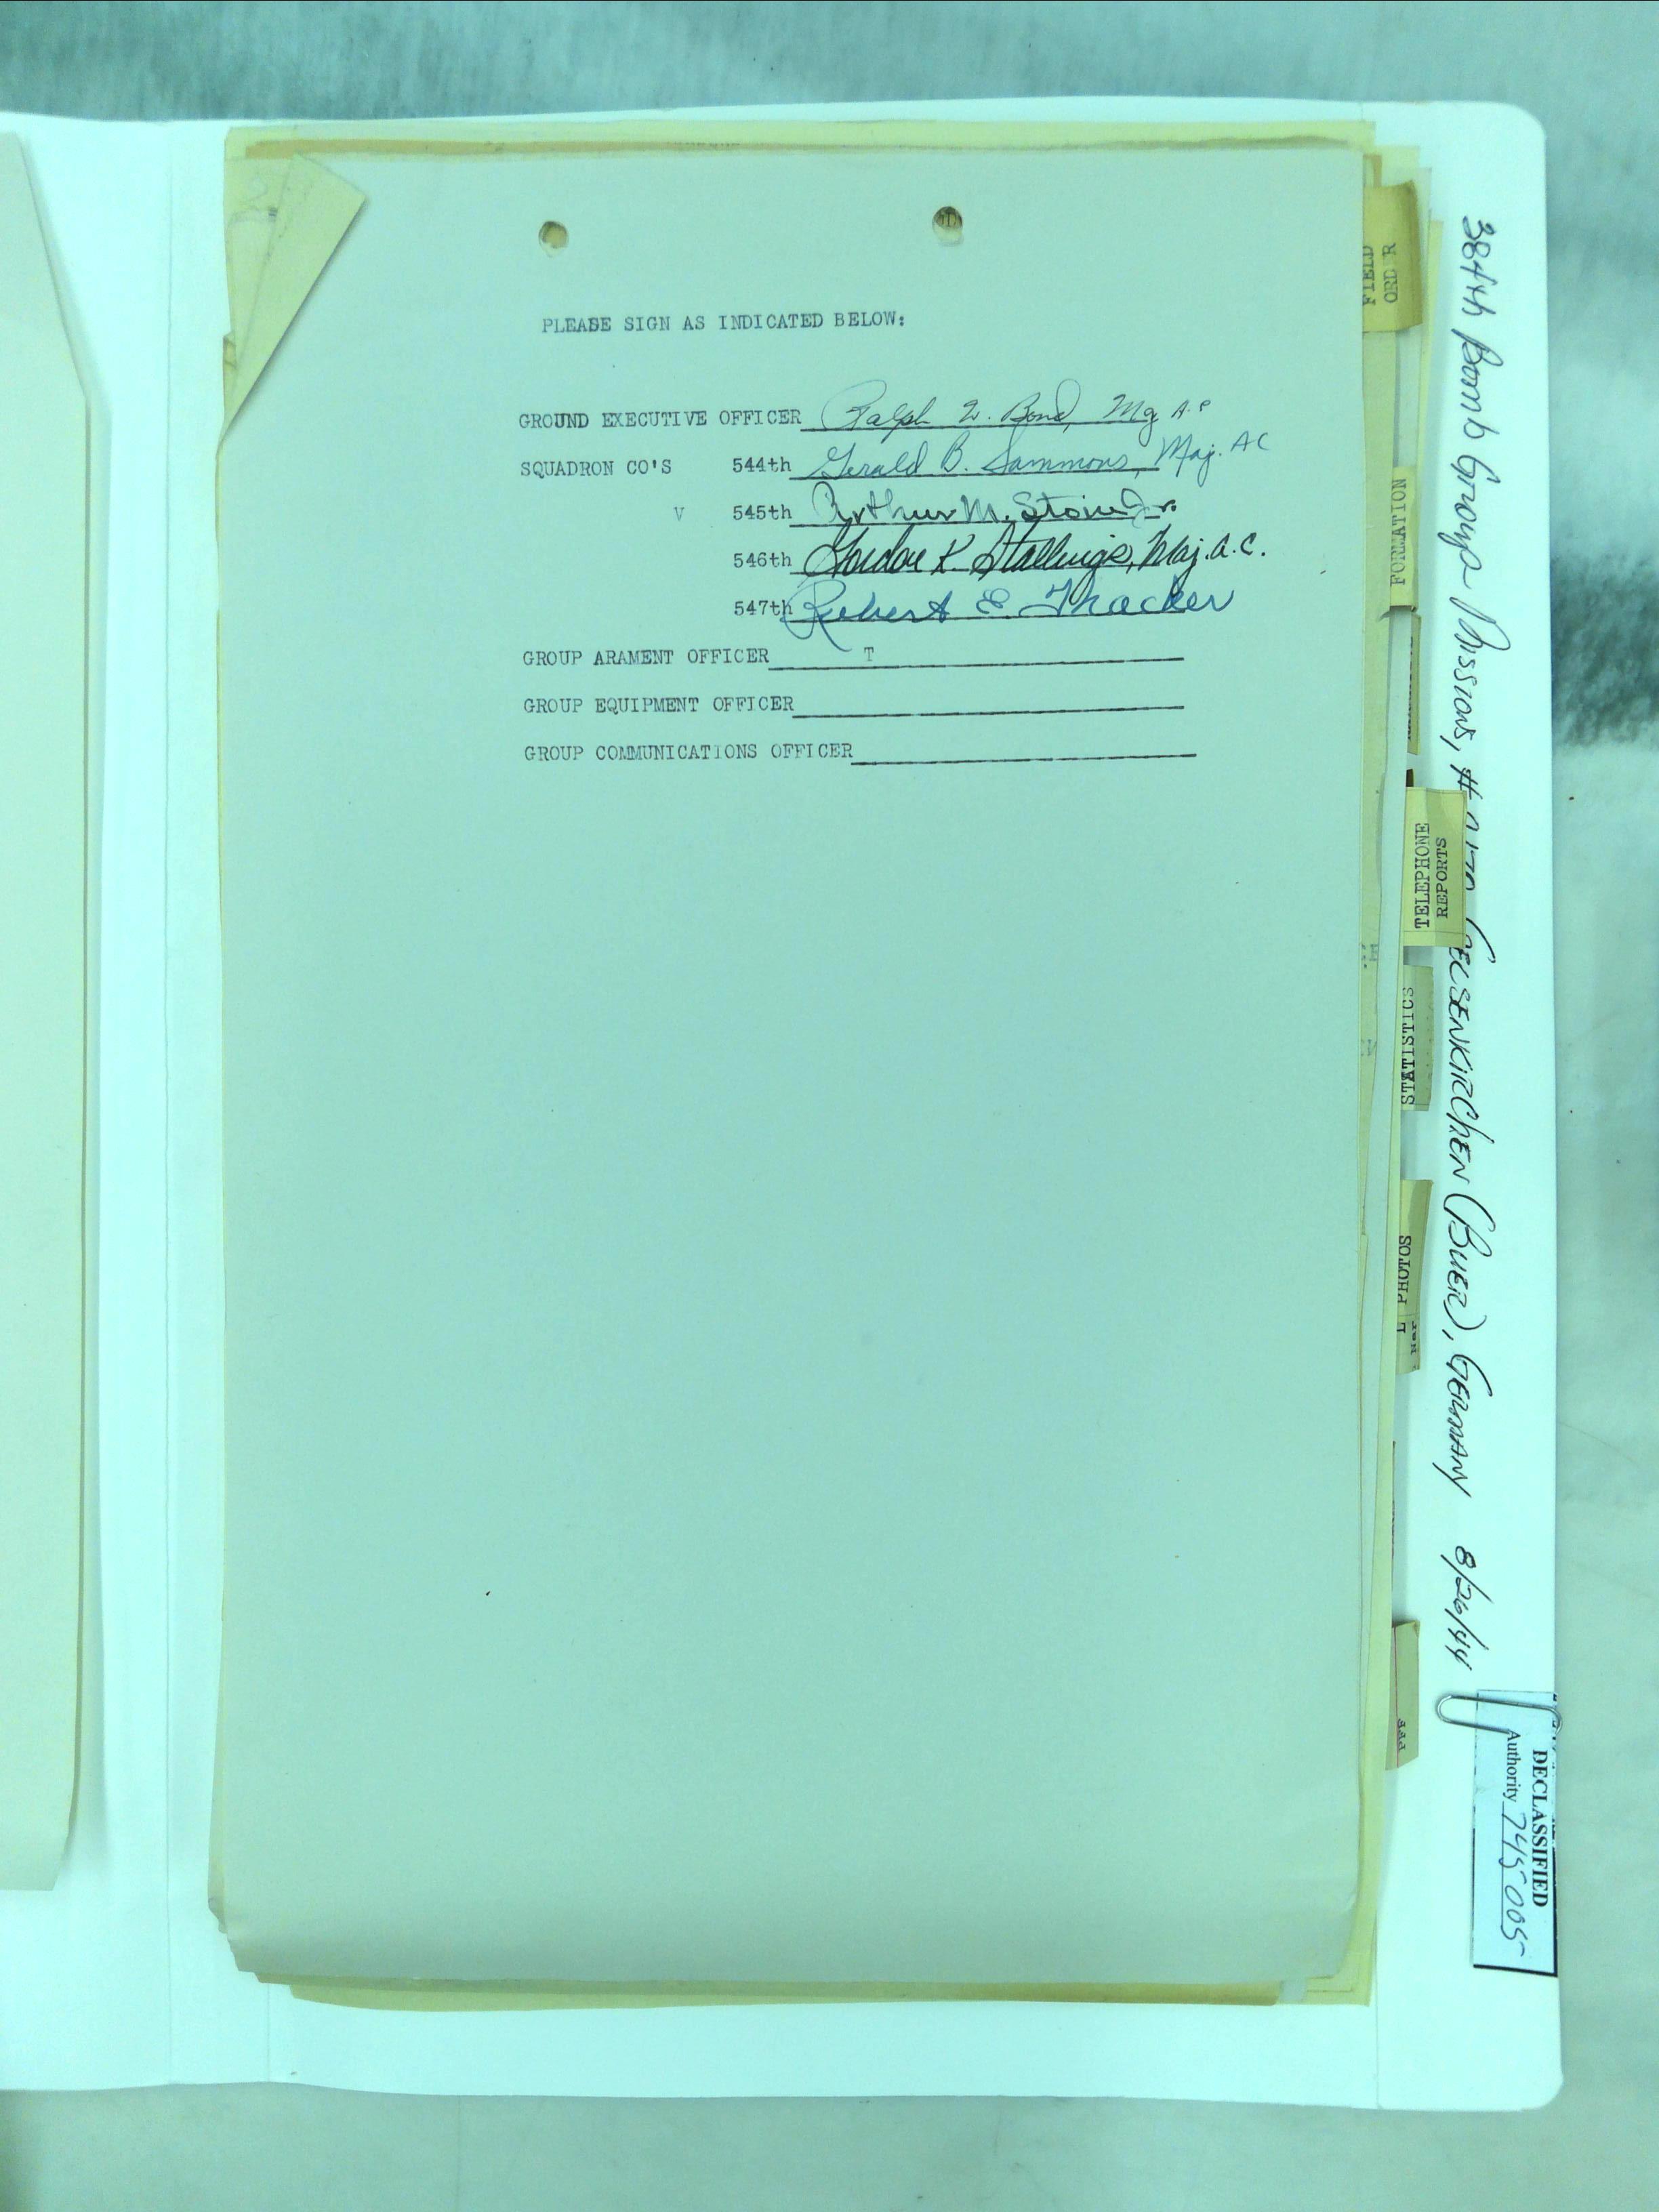 PLEASE SIGN AS INDICATED BELOW:
GROUND EXECUTIVE OFFICER Ralph W. Bond, Maj A.C
SQUADRON CO'S 544th Gerald B. Sammons, Maj. AC
V 545th Arthur M. Stone Jr.
546th Gordon K. Stallings, Maj. A.C.
547th Robert E. Thacker
GROUP ARAMENT OFFICER T
GROUP EQUIPMENT OFFICER
GROUP COMMUNICATIONS OFFICER
FIELD
ORD R
FORMATION
TELEPHONE
REPORTS
STATISTICS
PHOTOS
384th Bomb Group Mission, # GELSENKIRCHEN (BUER), GERMANY 8/26/44
DECLASSIFIED
Authority 745005